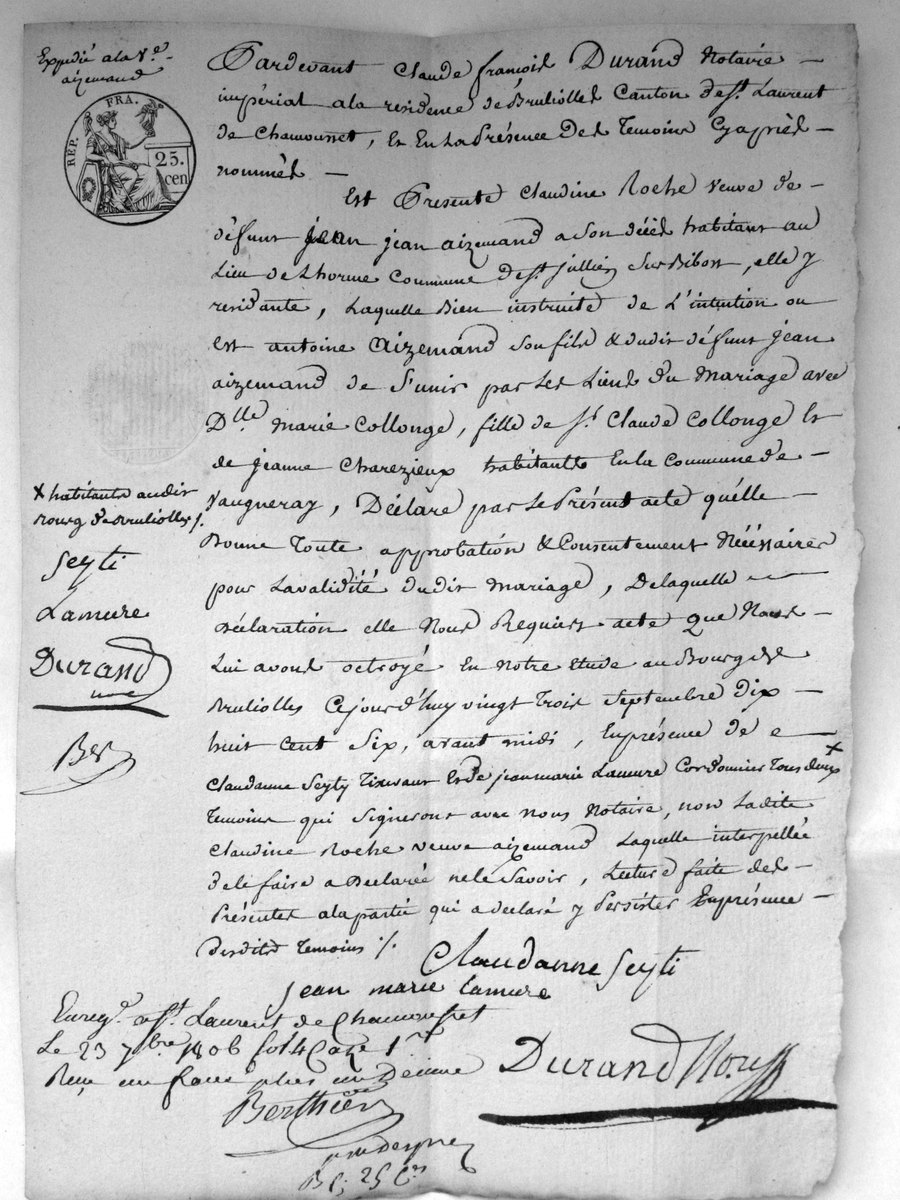 Expedié a la Ve
aizemand
REP. FRA.
25.
cen
Pardevant Claude françois Durand Notaire
impérial a la residence de Brullioles Canton de st. Laurent
de Chamousset, Et En la Présence des Temoins Cy après
nommés
Est Presente Claudine Roche veuve de
défunt jean jean aizemand a son décès habitant au
Lieu de Lhorme Commune de st. jullien sur Bibost, elle y
residante, Laquelle Bien instruite de L'intention ou
est antoine aizemand son fils & dudit défunt jean
aizemand de S'unir par les Liens du mariage avec
Dlle marie Collonge, fille de sr. Claude Collonge Et
de jeanne Charezieux habitants En la Commune de
vaugneray, Déclare par le Présent acte qu'élle
Donne Toute approbation & Consentement Nécéssaires
pour La validité du dit mariage, De laquelle
Déclaration elle Nous Requiert acte que Nous
Lui avons octroyé En notre étude au Bourg de
Brulioles Cejourd'huy vingt Trois Septembre dix
huit Cent Six, avant midi, En présence de
Claudanne Seyty Tixerant Et de jeanmarie Lamure Cordonnier Tous deux x
Temoins qui Signeront avec nous Notaire, non Ladite
Claudine Roche veuve aizemand Laquelle interpellée
de le faire a Déclarée ne le Savoir, Lecture faite des
Présentes a la partie qui a déclaré y Persister En présence
Desdits Temoins ./.
x habitants audit
Bourg de Brulioles ./.
Seyti
Lamure
Durand
Claudanne Seyti
jean marie lamure
Enregé. a st. Laurent de Chamousset
Le 23 7bre 1806 fol 4 Case 1re
Reçu un franc plus un Decime
Berthier
Durand Nore
25 Cs